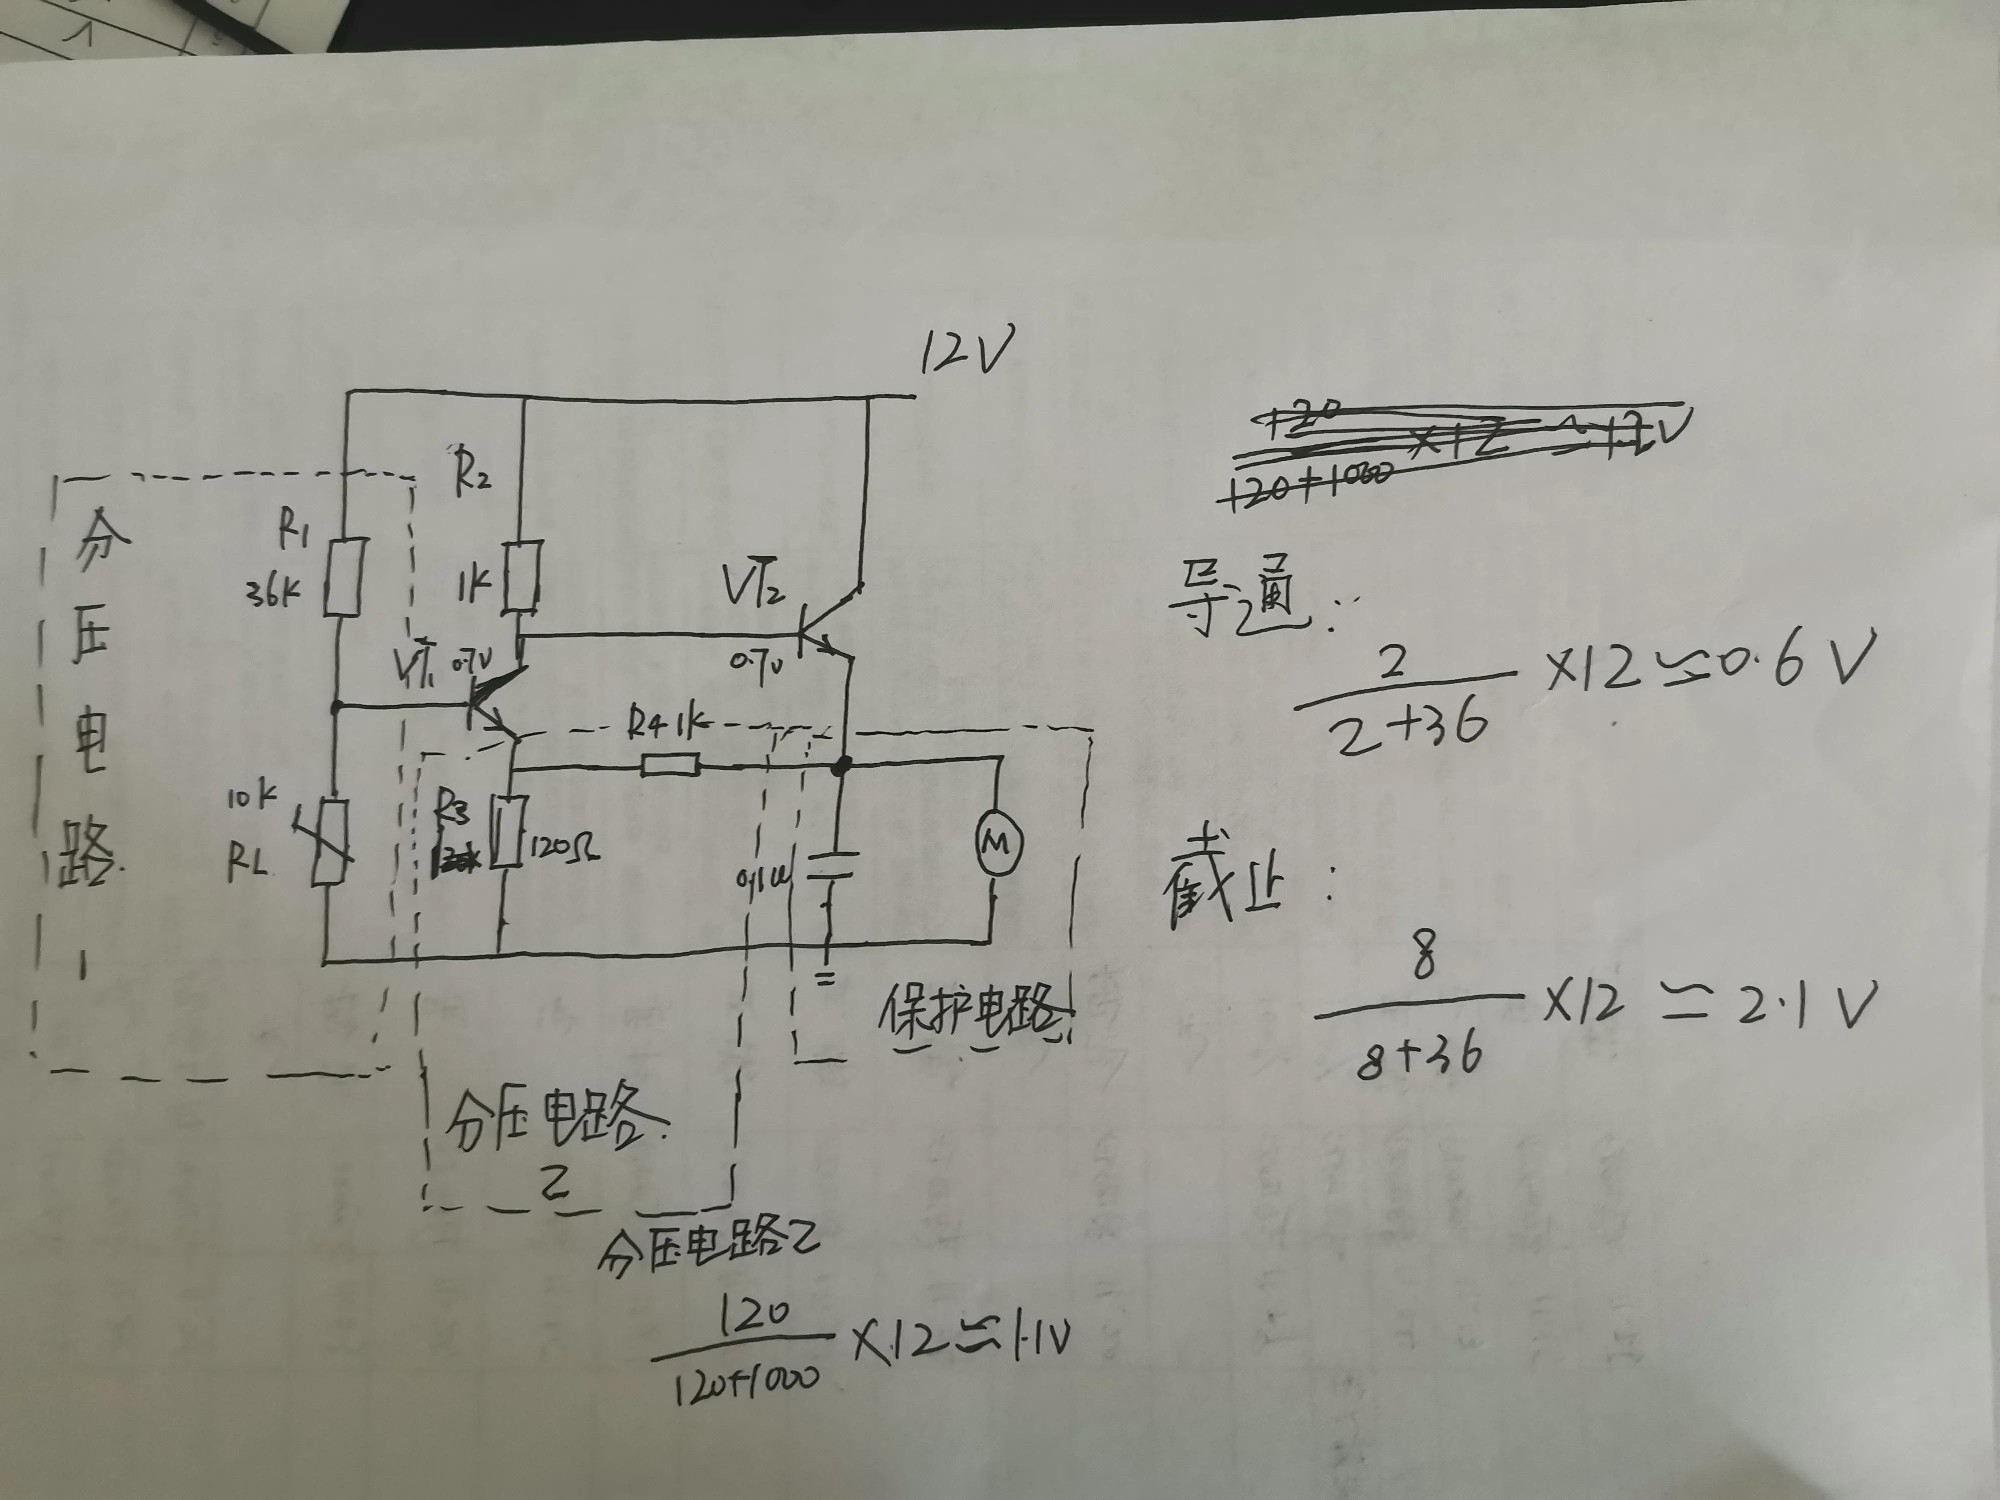 1
12V
120
120+1000 ×12 ≈12V
R2
分压电路1
R1
36K
1K
VT2
导通:
VT1 0.7V
0.7V
2
2+36 ×12≃0.6V
R4 1K
10K
RL
R3
120Ω
M
0.1u
截止:
8
8+36 ×12≃2.1V
保护电路
分压电路
2
分压电路2
120
120+1000 ×12≃1.1V